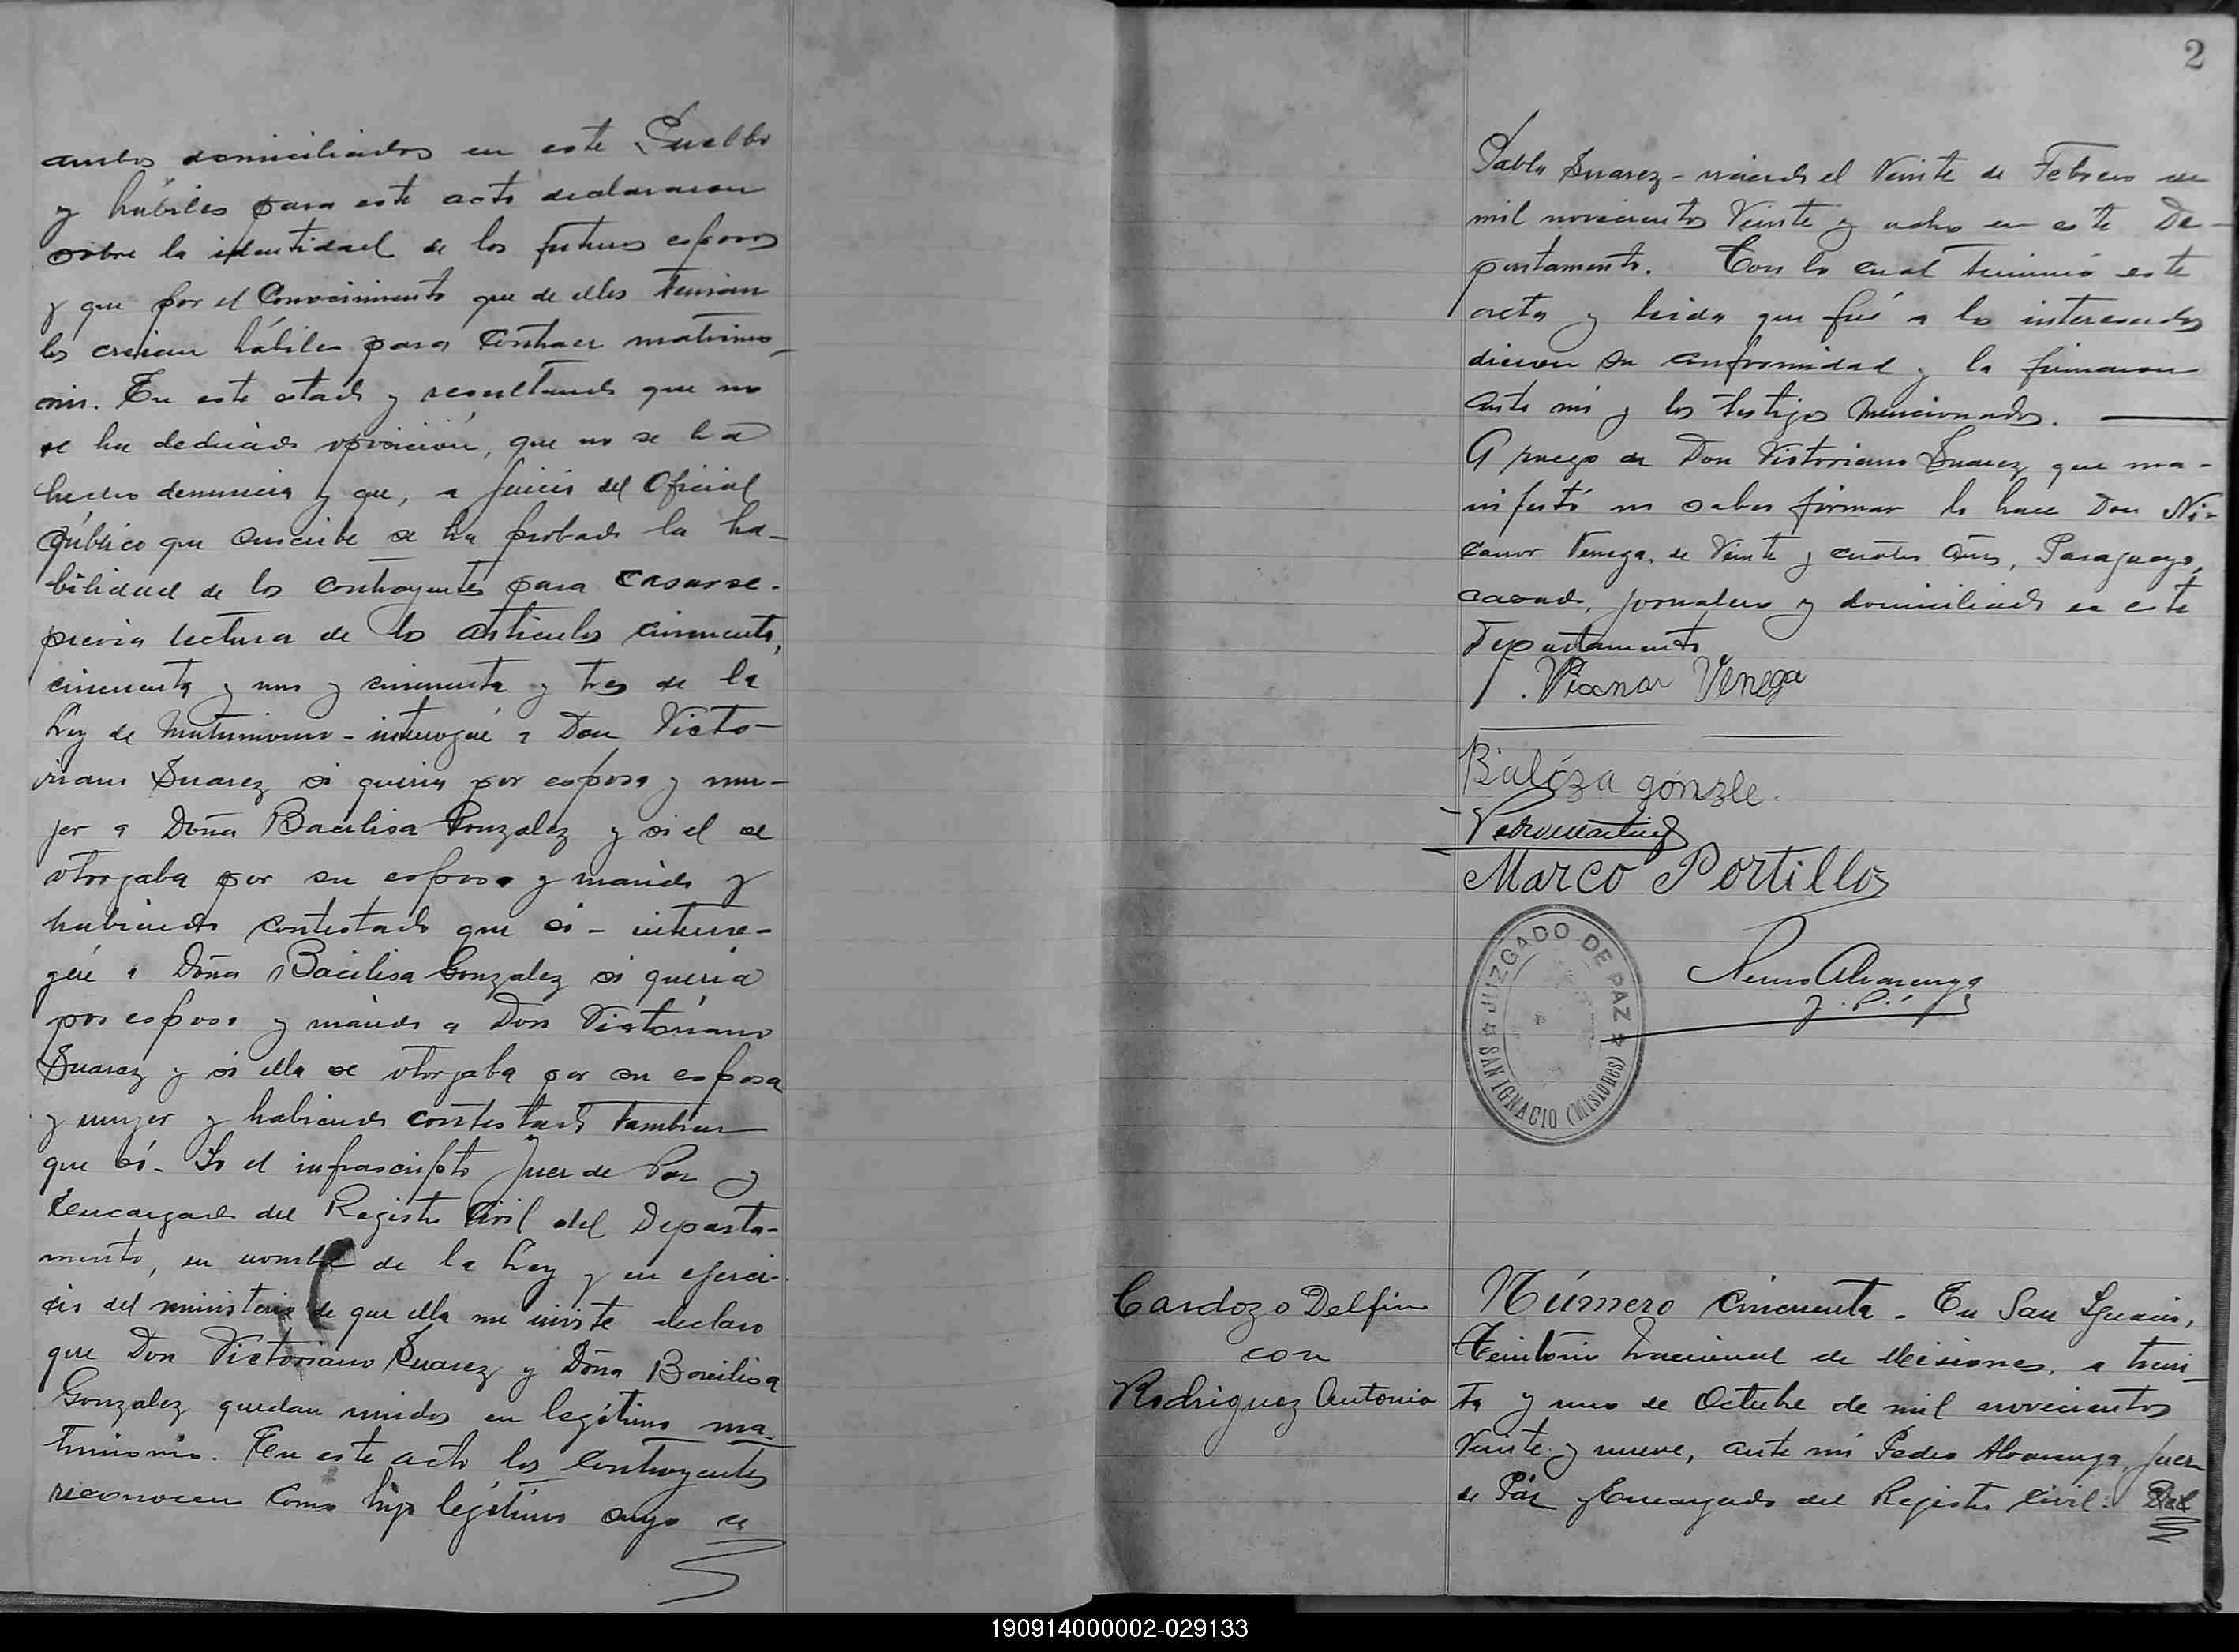 ambos domiciliados en este Pueblo
y hábiles para este acto declararon
sobre la identidad de los futuros esposos
y que por el Conocimiento que de ellos tenian
los creian hábiles para Contraer matrimo-
nio. En este estado y resultando que no
se ha deducido oposición, que no se ha
hecho denuncia y que, a juicio del Oficial
Público que suscribe se ha probado la ha-
bilidad de los contrayentes para casarse-
previa lectura de los articulos cincuenta,
cincuenta y uno y cincuenta y tres de la
Ley de Matrimonio - interrogué a Don Victo-
riano Suarez si queria por esposa y mu-
jer a Doña Bacilisa Gonzalez y si el se
otorgaba por su esposo y marido y
habiendo contestado que si - interro-
gué a Doña Bacilisa Gonzalez si queria
por esposo y marido a Don Victoriano
Suarez y si ella se otorgaba por su esposa
y mujer y habiendo contestado tambien
que sí - Yo el infrascripto Juez de Paz y
Encargado del Registro Civil del Departa-
mento, en nombre de la Ley y en ejerci-
cio del ministerio de que ella me inviste declaro
que Don Victoriano Suarez y Doña Bacilisa
Gonzalez quedan unidos en legítimo ma-
trimonio. En este acto los Contrayentes
reconocen como hijo legítimo suyo a
2
Pabla Suarez - nacido el Veinte de Febrero de
mil novecientos Veinte y ocho en este De-
partamento. Con lo cual terminó este
acta y leida que fué a los interesados
dieron su conformidad y la firmaron
ante mi y los testigos mencionados.
A ruego de Don Victoriano Suarez que ma-
nifestó no saber firmar lo hace Don Ni-
canor Venega, de Veinte y cuatro años, Paraguayo,
casado, jornalero y domiciliado en este
Departamento
Nicanor Venega
Baliza gonzle.
Pedro Martinez
Marco Portillo
JUZGADO DE PAZ
SAN IGNACIO (Misiones)
Alvarenga
J. P.
Cardozo Delfin
con
Rodriguez Antonia
Número Cincuenta - En San Ignacio,
Territorio Nacional de Misiones, a trein-
ta y uno de Octubre de mil novecientos
Veinte y nueve, ante mi Pedro Alvarenga Juez
de Paz y Encargado del Registro Civil: